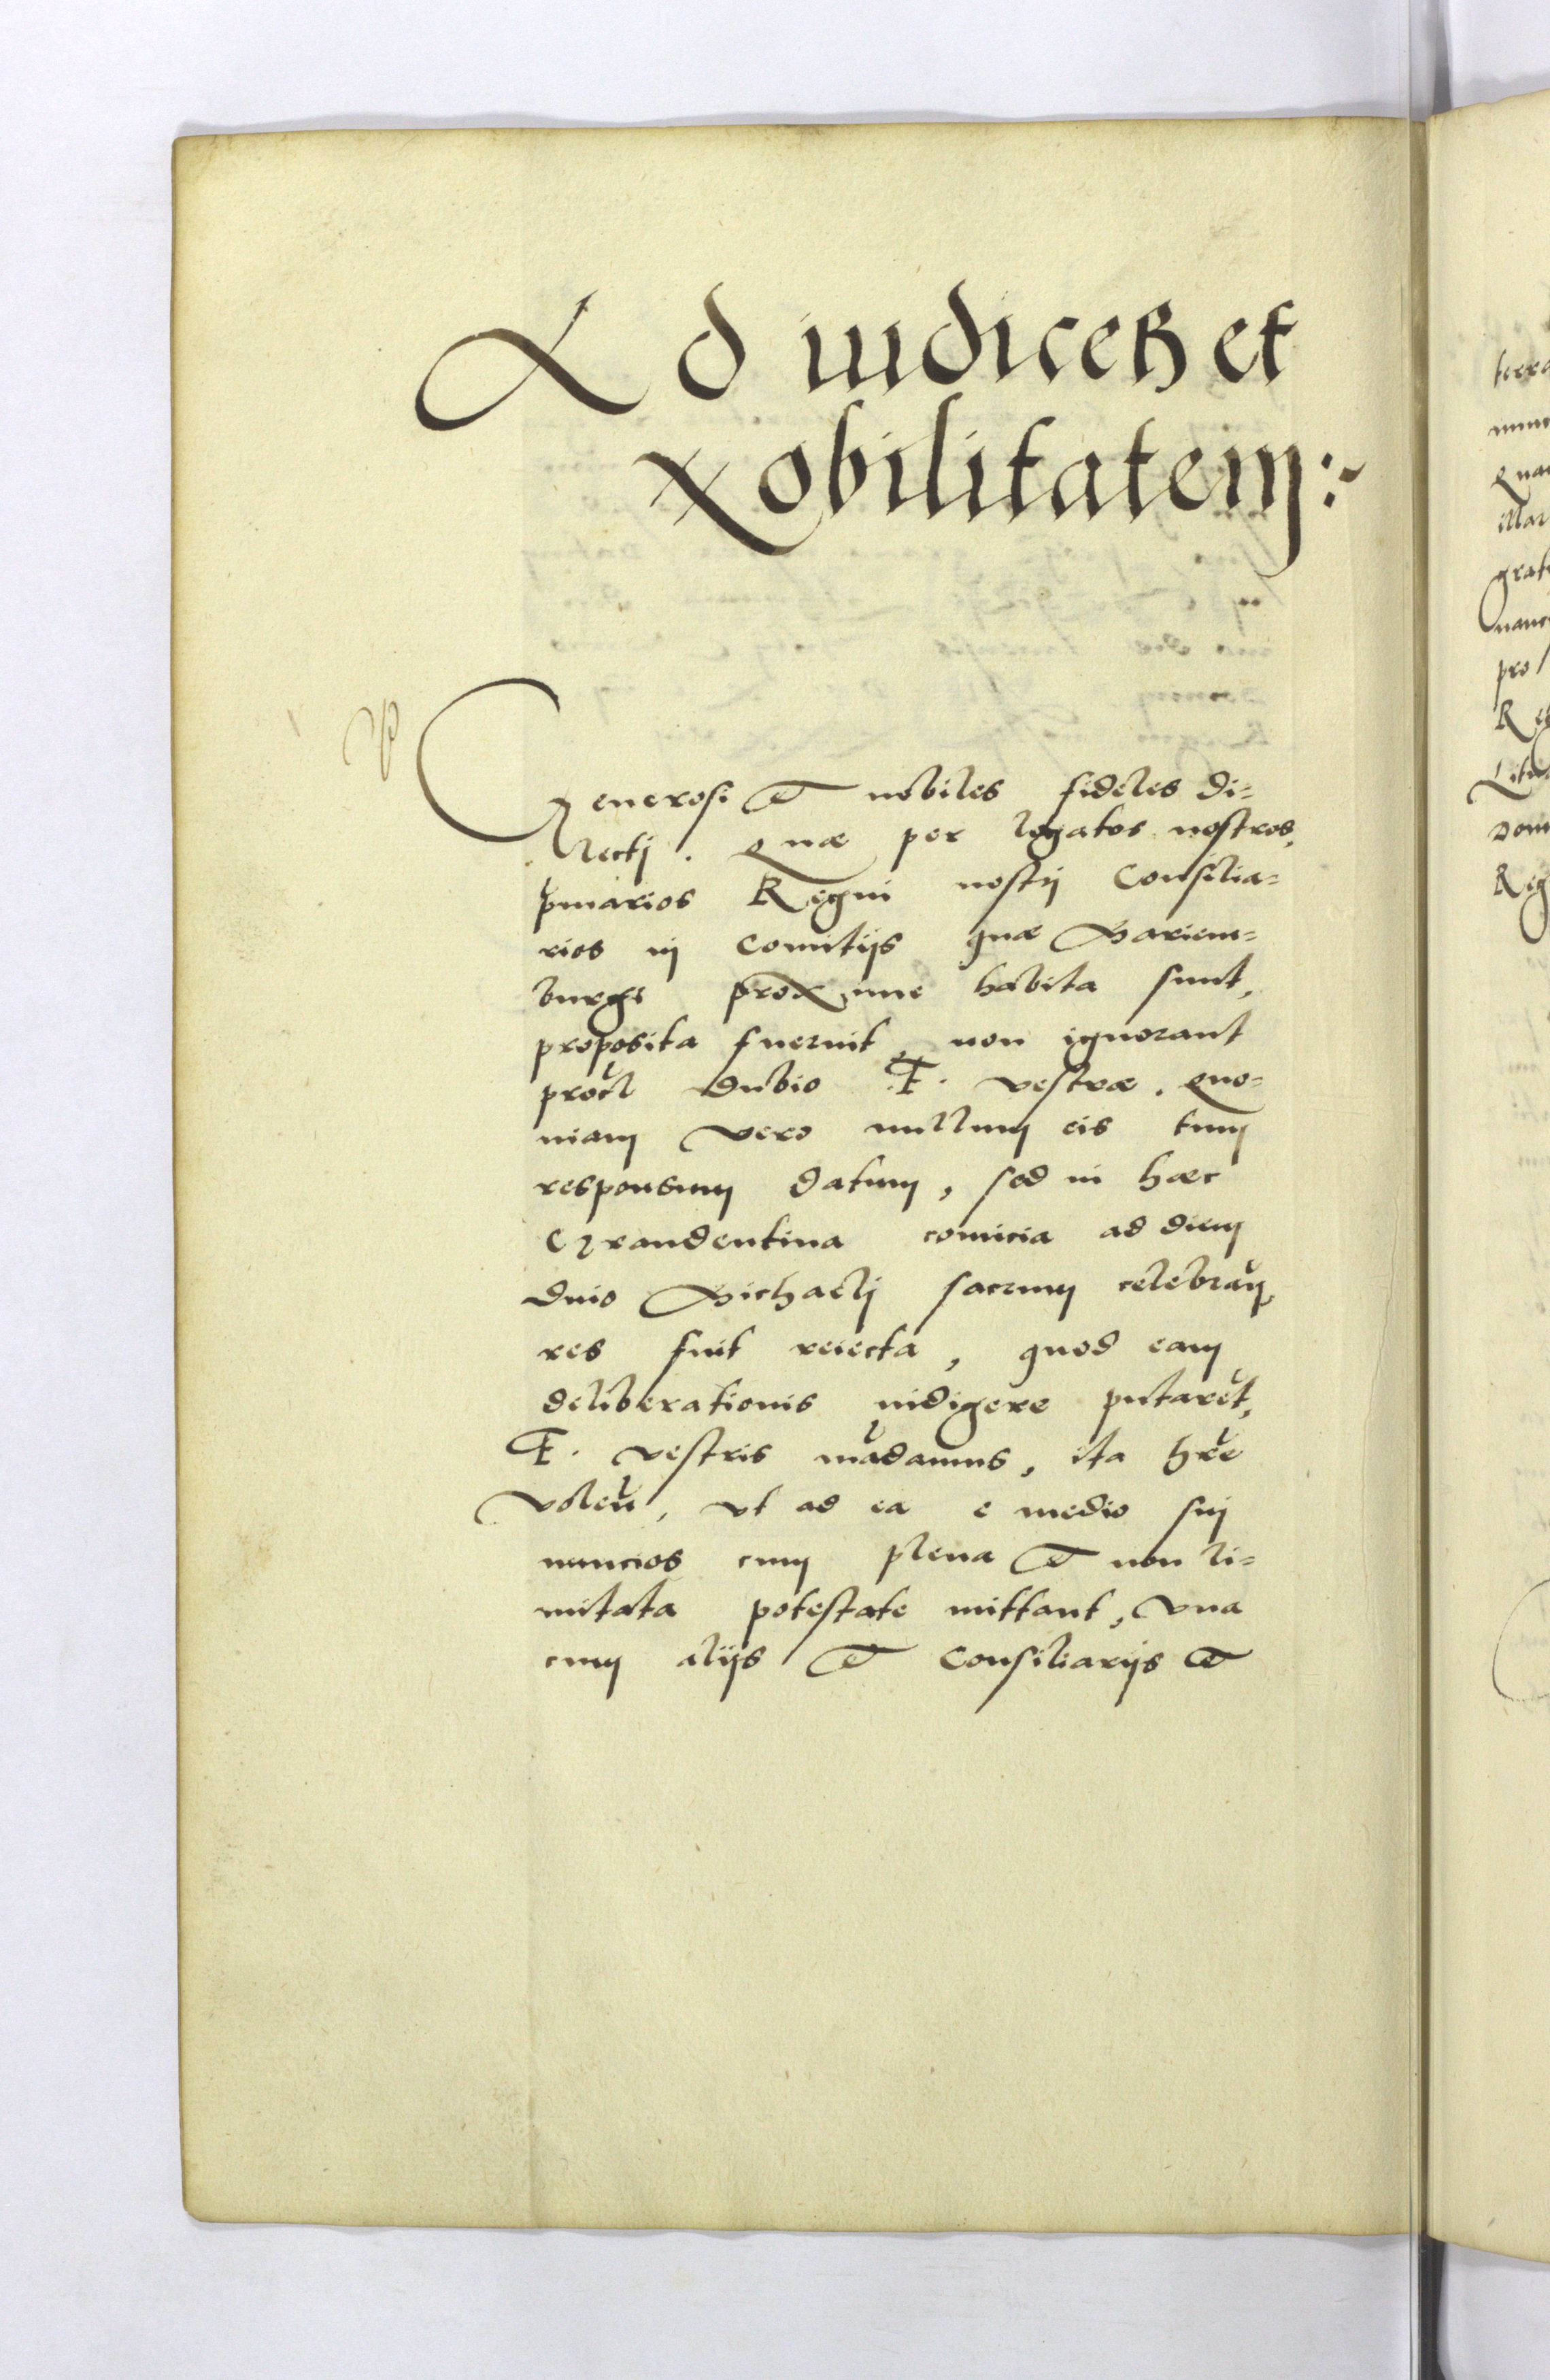 Ad iudices et
Nobilitatem:~
Generosi et nobiles fideles di=
lectj. Quæ per legatos nostros,
pmarios Regni nostrj Consilia=
rios in Comitijs quæ Mariem=
burgi proxime habita sunt,
proposita fuerunt, non ignorant
procul dubio F. vestræ. Quo=
niam vero nullum eis tum
responsum datum, sed in hæc
Graudentina comicia ad diem
Diuo Michaelj sacrum celebran,
res fuit reiecta, quod eam
deliberationis indigere putaret,
F. vestris mādamus, ita hre
volen, vt ad ea e medio suj
nuncios cum plena et non li=
mitata potestate mittant, Vna
cum alijs et Consiliarijs et
terra
num
Qua
illar
grat
pro
Reg
Litu
Dom
Reg